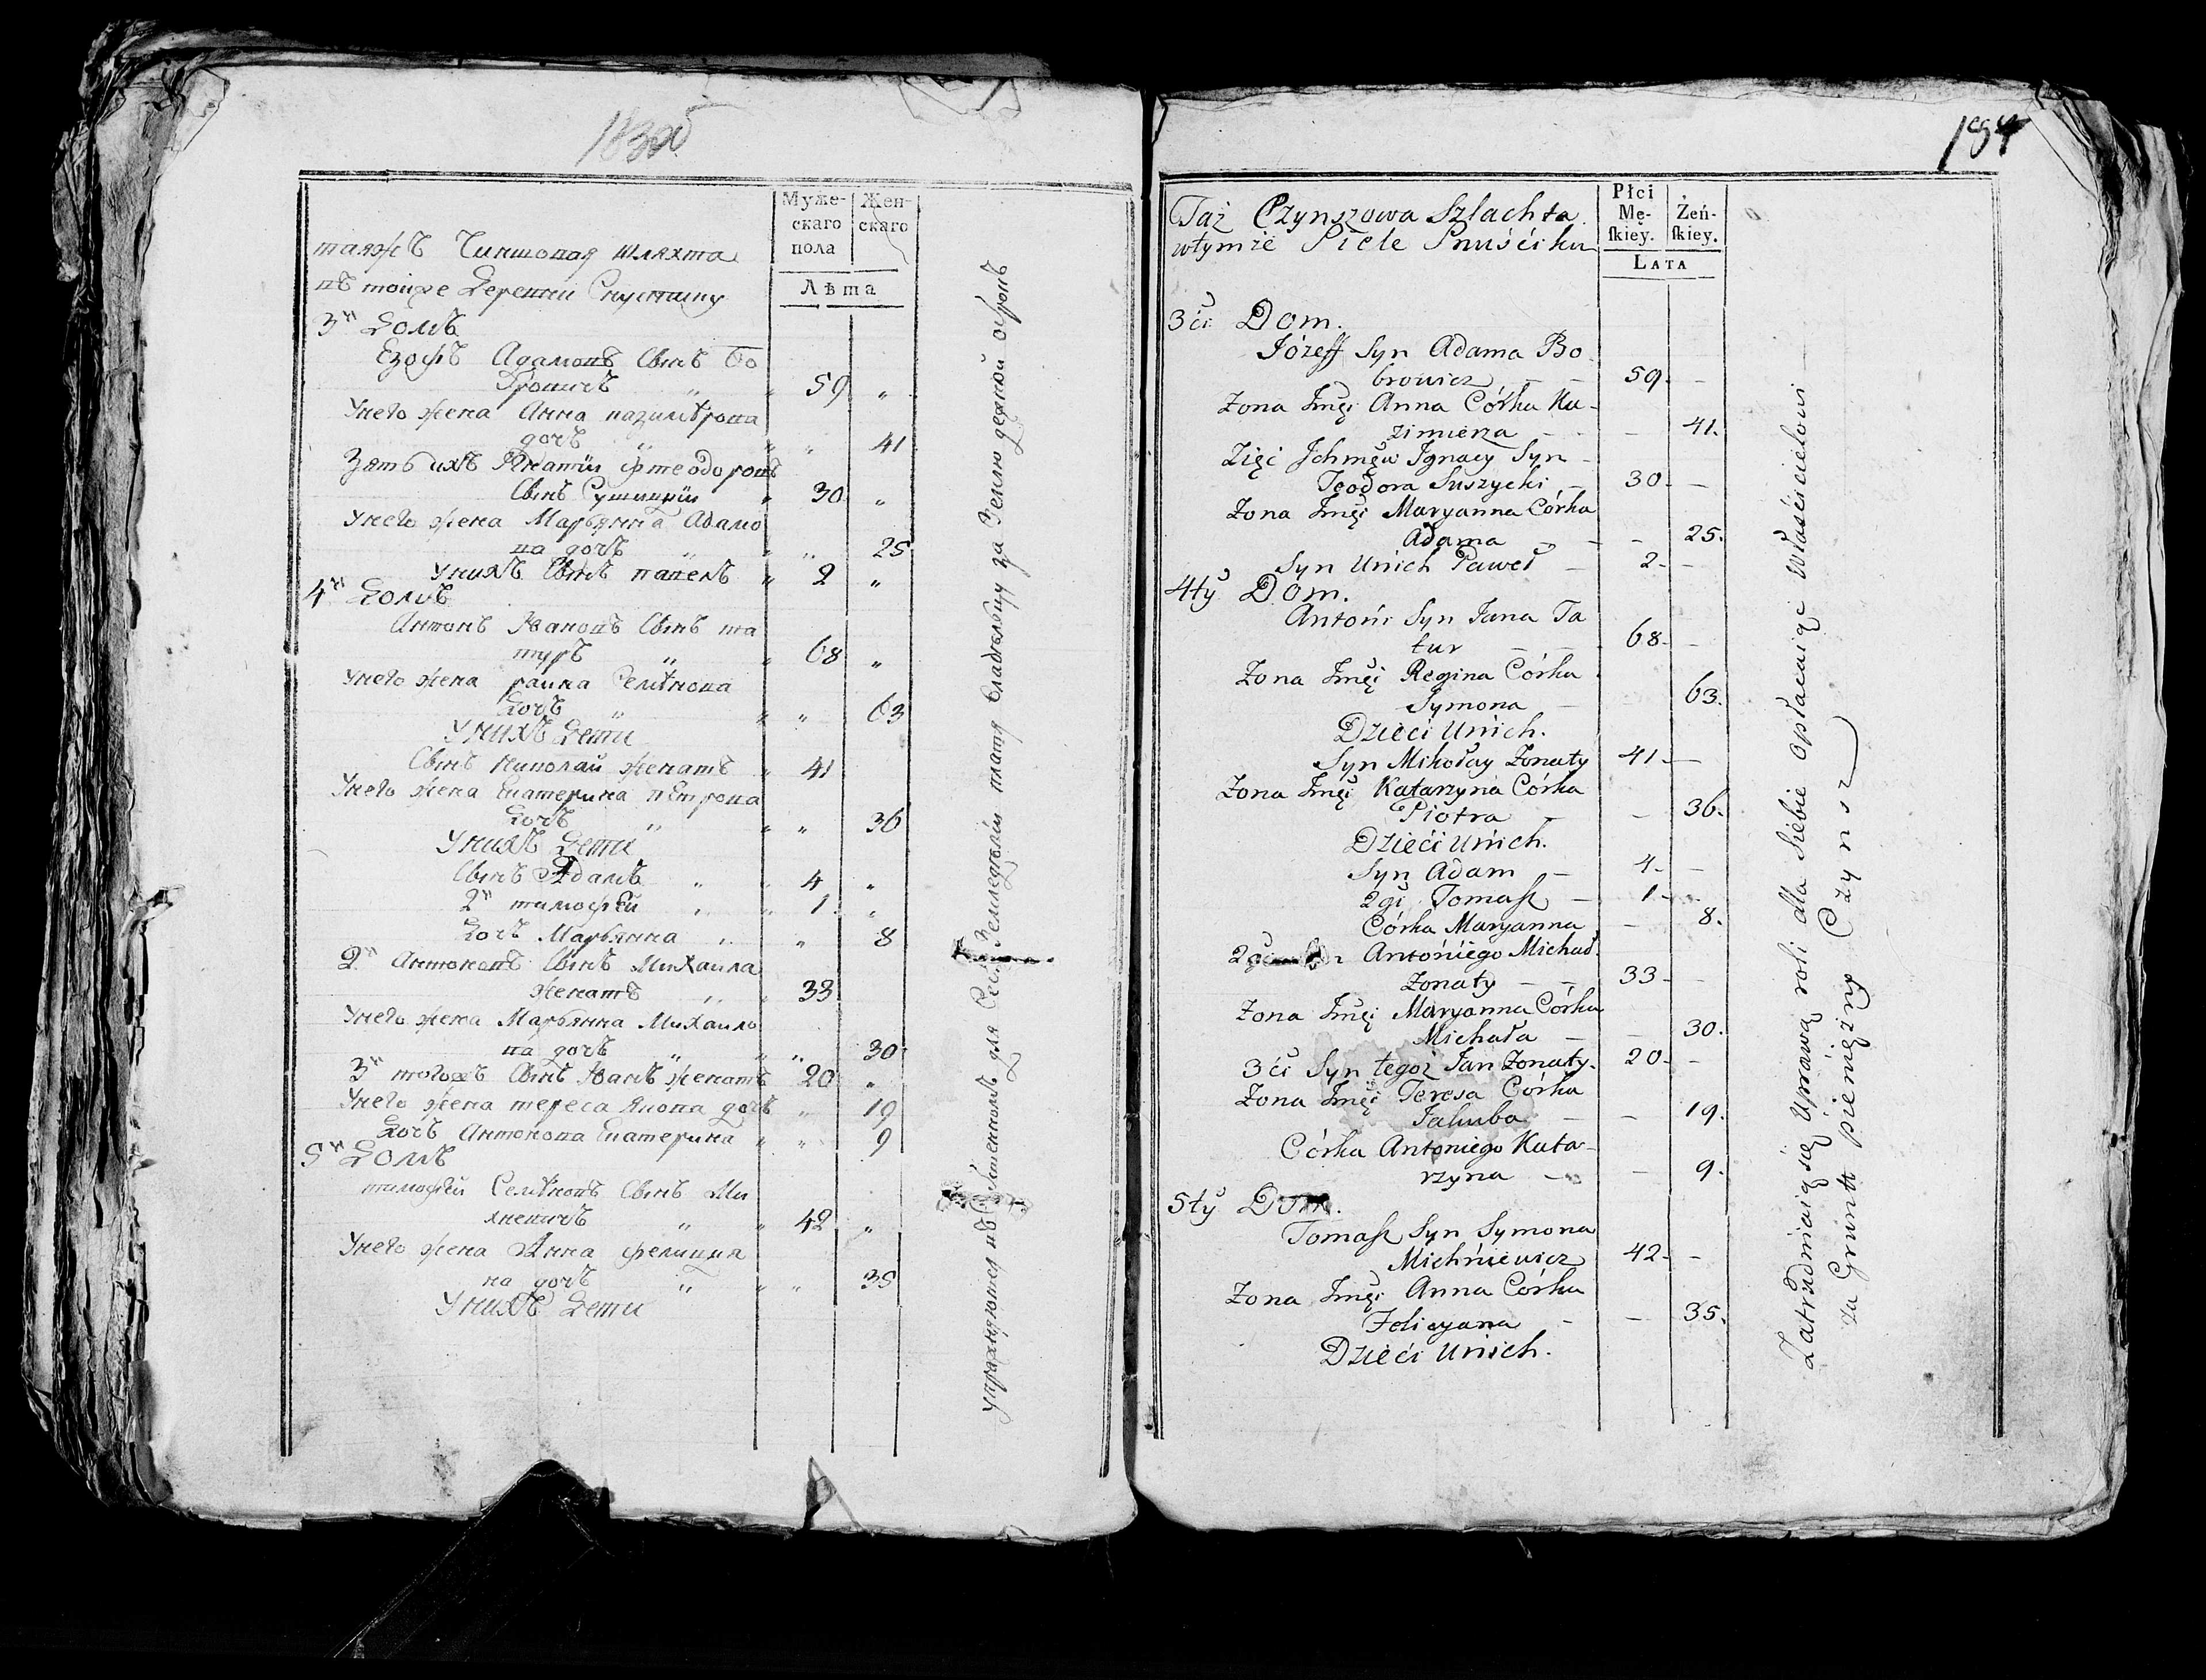 183об
Муже-
скаго
пола
Жен-
скаго
Лѣта
таяжъ Чиншовая шляхта
въ тойже Деревни Снустику
3й Домъ
Езофъ Адамовъ Сынъ Бо
бровичъ " " 59 "
Унего жена Анна казимѣрова
дочъ " " " 41
Зять ихъ Игнатїи фтеодоровъ
Сынъ Сушицкїи " 30 "
Унего жена Марьянна Адамо
ва дочъ " " " 25
Унихъ Сынъ павелъ " 2 "
4й Домъ
Антонъ Ивановъ Сынъ та
туръ " " 68 "
Унего жена раина Семѣнова
Дочъ " " " 63
Унихъ Дети
Сынъ Николай женатъ " 41
Унего жена Екатерина пѣтрова
Дочъ " " " 36
Унихъ Дети
Сынъ Адамъ " " 4 "
2й тимофѣй " " 1 "
Дочъ Марьянна " " 8
2й Антоновъ Сынъ Михаила
женатъ " " 33
Унего жена Марьянна Михаило
ва дочъ " " " 30
3й тогожъ Сынъ Иванъ женатъ 20 "
Унего жена тереса Якова дочъ " 19
Дочъ Антонова Екатерина " " 9
5й Домъ
тимофѣй Семѣновъ Сынъ Ми
хневичъ " " 42 "
Унего жена Анна фелиция
на дочъ " " " 35
Унихъ Дети
упражняются въ для Себя Земледелїи платя владѣльцу за Землю денжной оброкъ
184
Płci
Mę-
skiey.
Żeń-
skiey.
LATA
Taż Czynszowa Szlachta
wtymże Siele Snuściku
3ći Dom.
Józeff Syn Adama Bo
browicz — — 59. —
Żona Jmği Anna Córka Ka-
zimierza — — 41.
Zięć Ichmğw Ignacy Syn —
Teodora Suszycki — 30. —
Żona Jmği Maryanna Córka
Adama — — 25.
Syn Unich Paweł — 2. —
4ty Dom.
Antoni Syn Jana Ta
tur — — 68. —
Żona Jmği Regina Córka
Symona — 63.
Dzieci Unich.
Syn Mikołay Żonaty 41. —
Żona Jmği Katarzyna Córka
Piotra — — 36.
Dzieci Unich.
Syn Adam — 4. —
2gi Tomasz — 1. —
Córka Maryanna — 8.
2gi Antoniego Michał
Żonaty — — 33. —
Żona Jmği Maryanna Córka
Michała — — 30.
3ći Syn tegoż Jan Żonaty. 20. —
Żona Jmği Teresa Córka
Jakuba — — 19.
Córka Antoniego Kata-
rzyna — — 9.
5ty Dom.
Tomasz Syn Symona
Michniewicz 42. —
Żona Jmği Anna Córka
Felicyana — — 35.
Dzieci Unich.
Zatrudniaią się Uprawą roli dla Siebie opłacaiąc Właścicielowi —
za Grunt pieniężny Czynsz